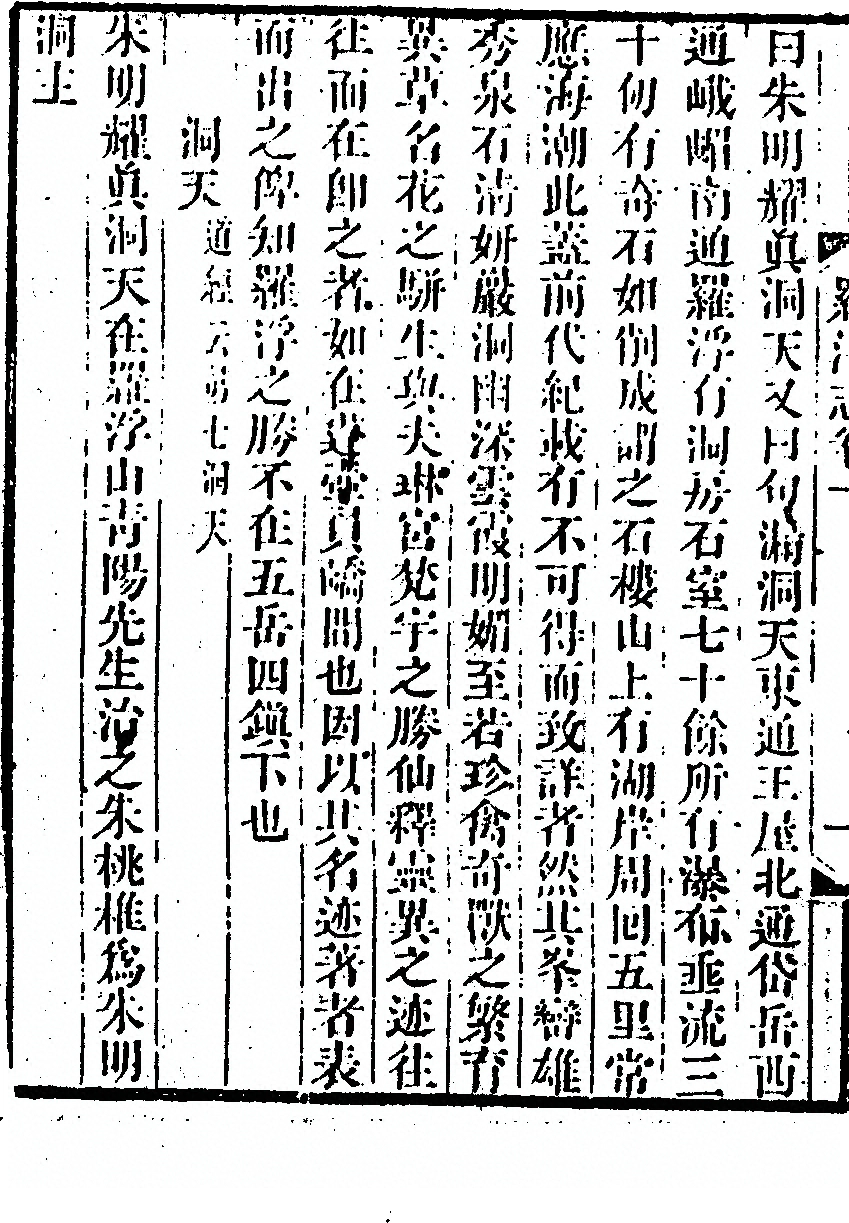 羅浮志卷一
一
曰朱明耀眞洞天又曰勾漏洞天東通王屋北通岱岳西
通峨嵋南通羅浮有洞房石室七十餘所有瀑布垂流三
十仞有奇石如削成謂之石樓山上有湖岸周回五里常
應海潮此蓋前代紀載有不可得而致詳者然其峯巒雄
秀泉石清妍巖洞幽深雲霞明媚至若珍禽奇獸之繁育
異草名花之駢生與夫琳宮梵宇之勝仙釋靈異之迹往
往而在卽之者如在蓬壺員嶠間也因以其名迹著者表
而出之俾知羅浮之勝不在五岳四鎭下也
洞天道經云第七洞天
朱明耀眞洞天在羅浮山靑陽先生治之朱桃椎爲朱明
洞主